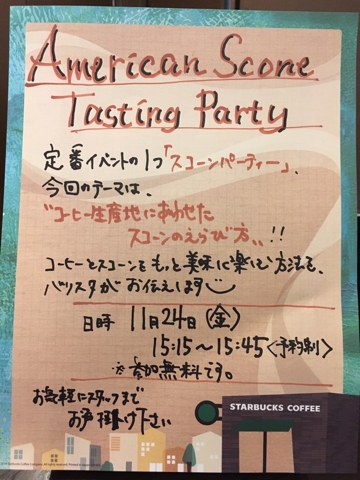 American Scone
Tasting Party
定番イベントの1つ「スコーンパーティー」、
今回のテーマは、
"コーヒー生産地にあわせた
スコーンのえらび方" !!
コーヒーとスコーンをもっと美味に楽しむ方法を、
バリスタがお伝えします
日時 11月24日(金)
15:15〜15:45〈予約制〉
※参加無料です。
お気軽にスタッフまで
お声掛け下さい
STARBUCKS COFFEE